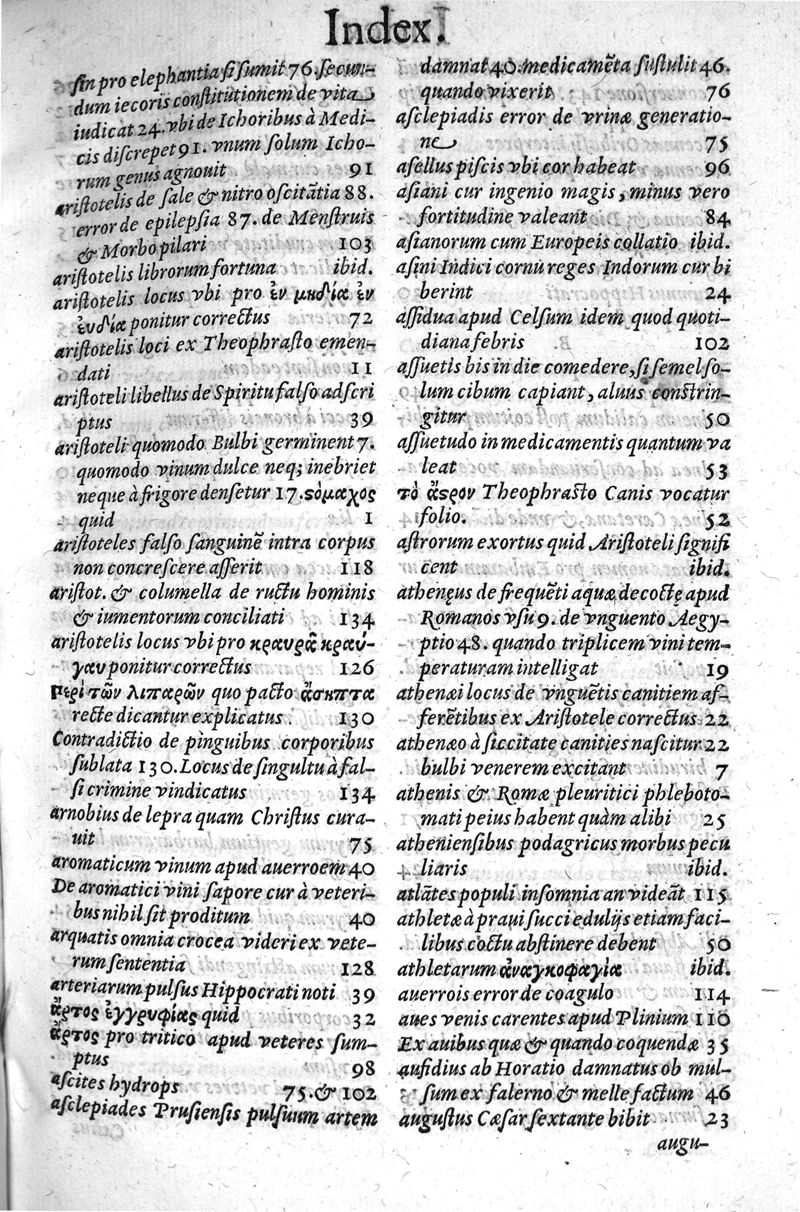 Index.
sin pro elephantia si sumit 76. secun-
dum iecoris constitutionem de vita
iudicat 24. vbi de Ichoribus à Medi-
cis discrepet 91. vnum solum Icho-
rum genus agnouit 91
aristotelis de sale & nitro oscitātia 88.
error de epilepsia 87. de Menstruis
& Morbo pilari 103
aristotelis librorum fortuna ibid.
aristotelis locus vbi pro ἐν μηδίᾳ ἐν
ἐνδίᾳ ponitur correctus 72
aristotelis loci ex Theophrasto emen-
dati 11
aristoteli libellus de Spiritu falso adscri
ptus 39
aristoteli quomodo Bulbi germinent 7.
quomodo vinum dulce neq; inebriet
neque à frigore densetur 17. ϛόμαχος
quid 1
aristoteles falso sanguinē intra corpus
non concrescere asserit 118
aristot. & columella de ructu hominis
& iumentorum conciliati 134
aristotelis locus vbi pro κραυρᾶν κραύ-
γαν ponitur correctus 126
Περὶ τῶν λιπαρῶν quo pacto ἄσηπτα
recte dicantur explicatus. 130
Contradictio de pinguibus corporibus
sublata 130. Locus de singultu à fal-
si crimine vindicatus 134
arnobius de lepra quam Christus cura-
uit 75
aromaticum vinum apud auerroem 40
De aromatici vini sapore cur à veteri-
bus nihil sit proditum 40
arquatis omnia crocea videri ex vete-
rum sententia 128
arteriarum pulsus Hippocrati noti 39
ἄρτος ἐγγρυφίας quid 32
ἄρτος pro tritico apud veteres sum-
ptus 98
ascites hydrops 75. & 102
asclepiades Prusiensis pulsuum artem
damnat 40. medicamēta sustulit 46.
quando vixerit 76
asclepiadis error de vrinæ generatio-
ne 75
asellus piscis vbi cor habeat 96
asiani cur ingenio magis, minus vero
fortitudine valeant 84
asianorum cum Europeis collatio ibid.
asini Indici cornu reges Indorum cur bi
berint 24
assidua apud Celsum idem quod quoti-
diana febris 102
assuetis bis in die comedere, si semel so-
lum cibum capiant, aluus constrin-
gitur 50
assuetudo in medicamentis quantum va
leat 53
τὸ ἄϛρον Theophrasto Canis vocatur
folio. 52
astrorum exortus quid Aristoteli signifi
cent ibid.
athenęus de frequēti aquæ decoctę apud
Romanos vsu 9. de vnguento Aegy-
ptio 48. quando triplicem vini tem-
peraturam intelligat 19
athenæi locus de vnguētis canitiem af-
ferētibus ex Aristotele correctus 22
athenæo à siccitate canities nascitur 22
bulbi venerem excitant 7
athenis & Romæ pleuritici phleboto-
mati peius habent quàm alibi 25
atheniensibus podagricus morbus pecu
liaris ibid.
atlātes populi insomnia an videāt 115
athletæ à praui succi edulijs etiam faci-
libus coctu abstinere debent 50
athletarum ἀναγκοφαγία ibid.
auerrois error de coagulo 114
aues venis carentes apud Plinium 110
Ex auibus quæ & quando coquendæ 35
aufidius ab Horatio damnatus ob mul-
sum ex falerno & melle factum 46
augustus Cæsar sextante bibit 23
augu-